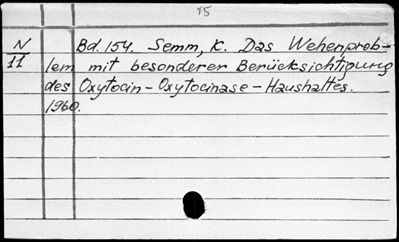 15
N Bd. 154. Semm, K. Das Wehenprob-
11 lem mit besonderer Berücksichtigung
des Oxytocin-Oxytocinase-Haushaltes.
1960.